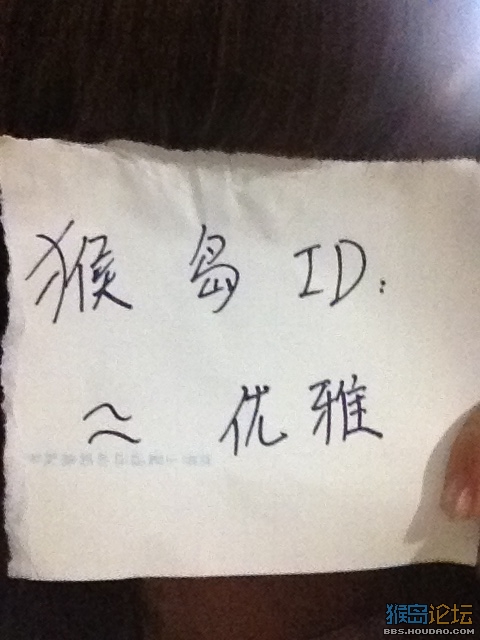 猴岛ID:
≈ 优雅
猴岛论坛
BBS.HOUDAO.COM